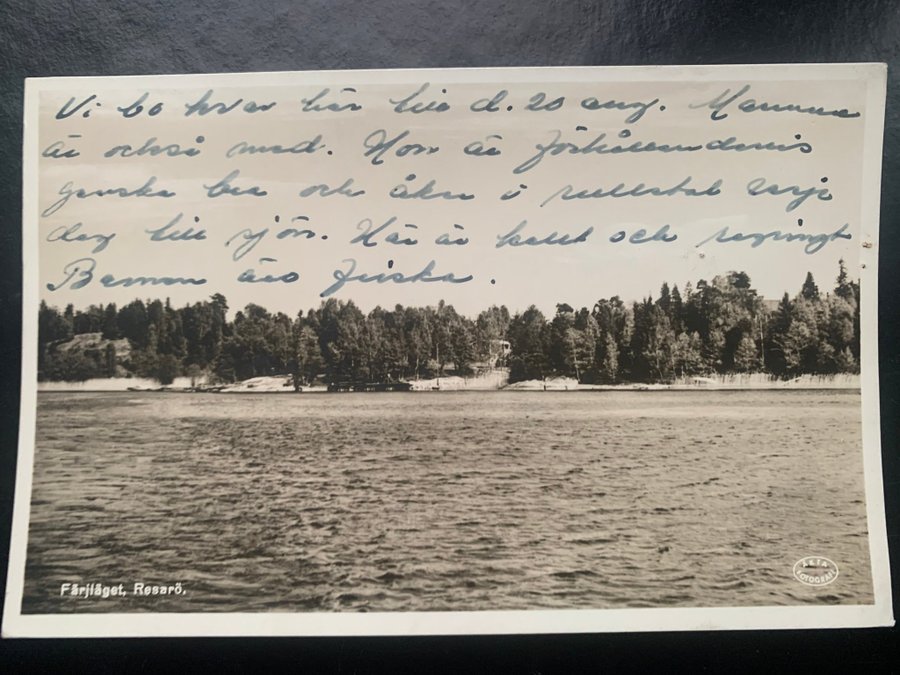 Vi bo kvar här till d. 20 aug. Mamma
är också med. Hon är förhållandevis
ganska bra och åker i rullstol varje
dag till sjön. Här är kallt och regnigt
Barnen äro friska.
Färjläget, Resarö.
ÄKTA
FOTOGRAFI